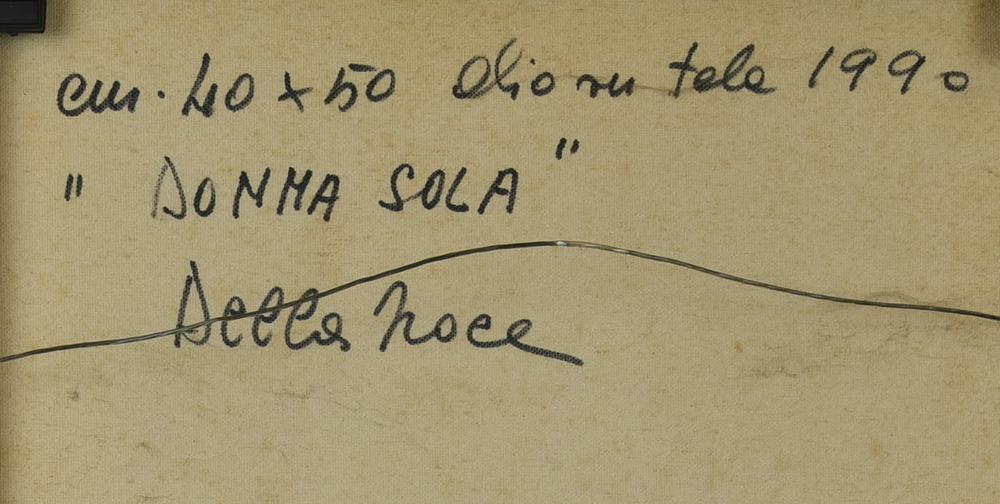 cm. 40 x 50 olio su tela 1990
" DONNA SOLA "
Della Noce